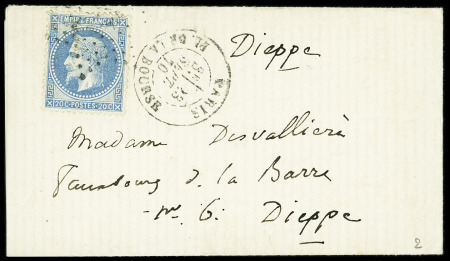 EMPIRE FRANÇAIS
20 C POSTES 20 C
PARIS PL. DE LA BOURSE
Dieppe
Madame Desvallières
Faubourg d. la Barre
nº 6. Dieppe
2